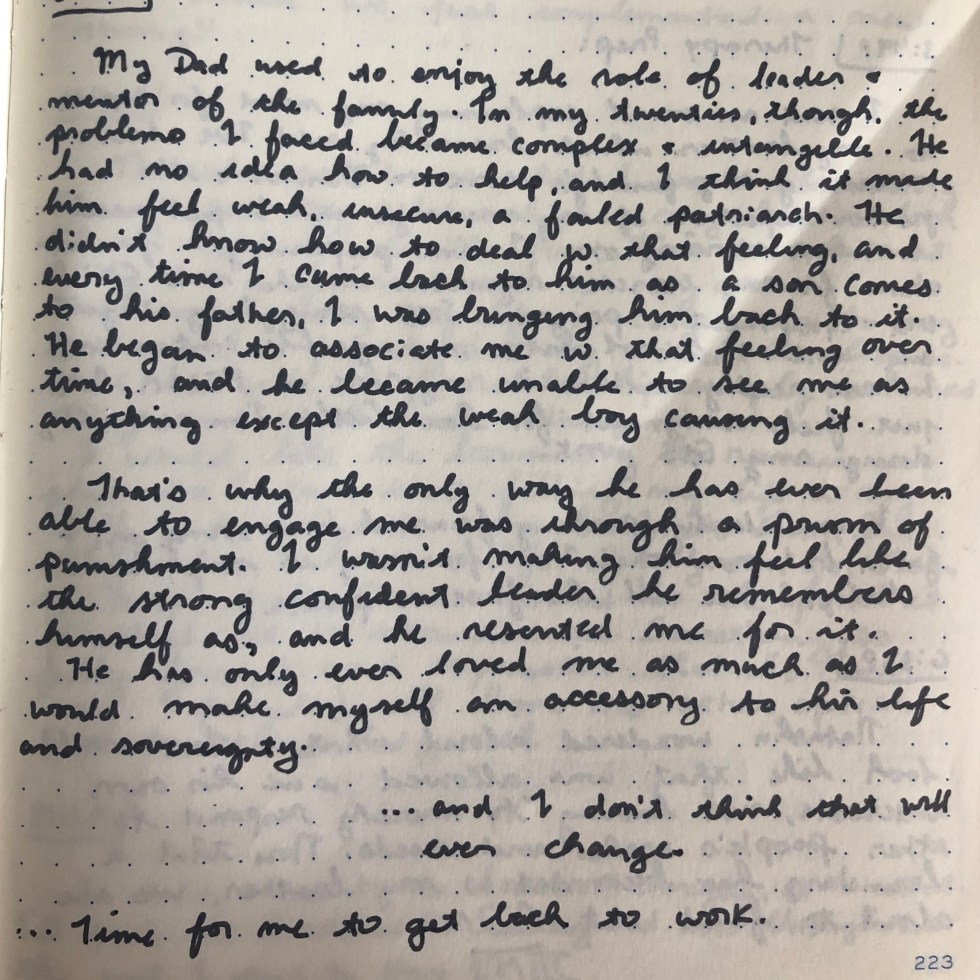 My Dad used to enjoy the role of leader &
mentor of the family. In my twenties, though, the
problems I faced became complex & intangible. He
had no idea how to help, and I think it made
him feel weak, insecure, a failed patriarch. He
didn't know how to deal w. that feeling, and
every time I came back to him as a son comes
to his father, I was bringing him back to it.
He began to associate me w. that feeling over
time, and he became unable to see me as
anything except the weak boy causing it.
That's why the only way he has ever been
able to engage me was through a prism of
punishment. I wasn't making him feel like
the strong confident leader he remembers
himself as, and he resented me for it.
He has only ever loved me as much as I
would make myself an accessory to his life
and sovereignty.
... and I don't think that will
ever change.
... Time for me to get back to work.
223